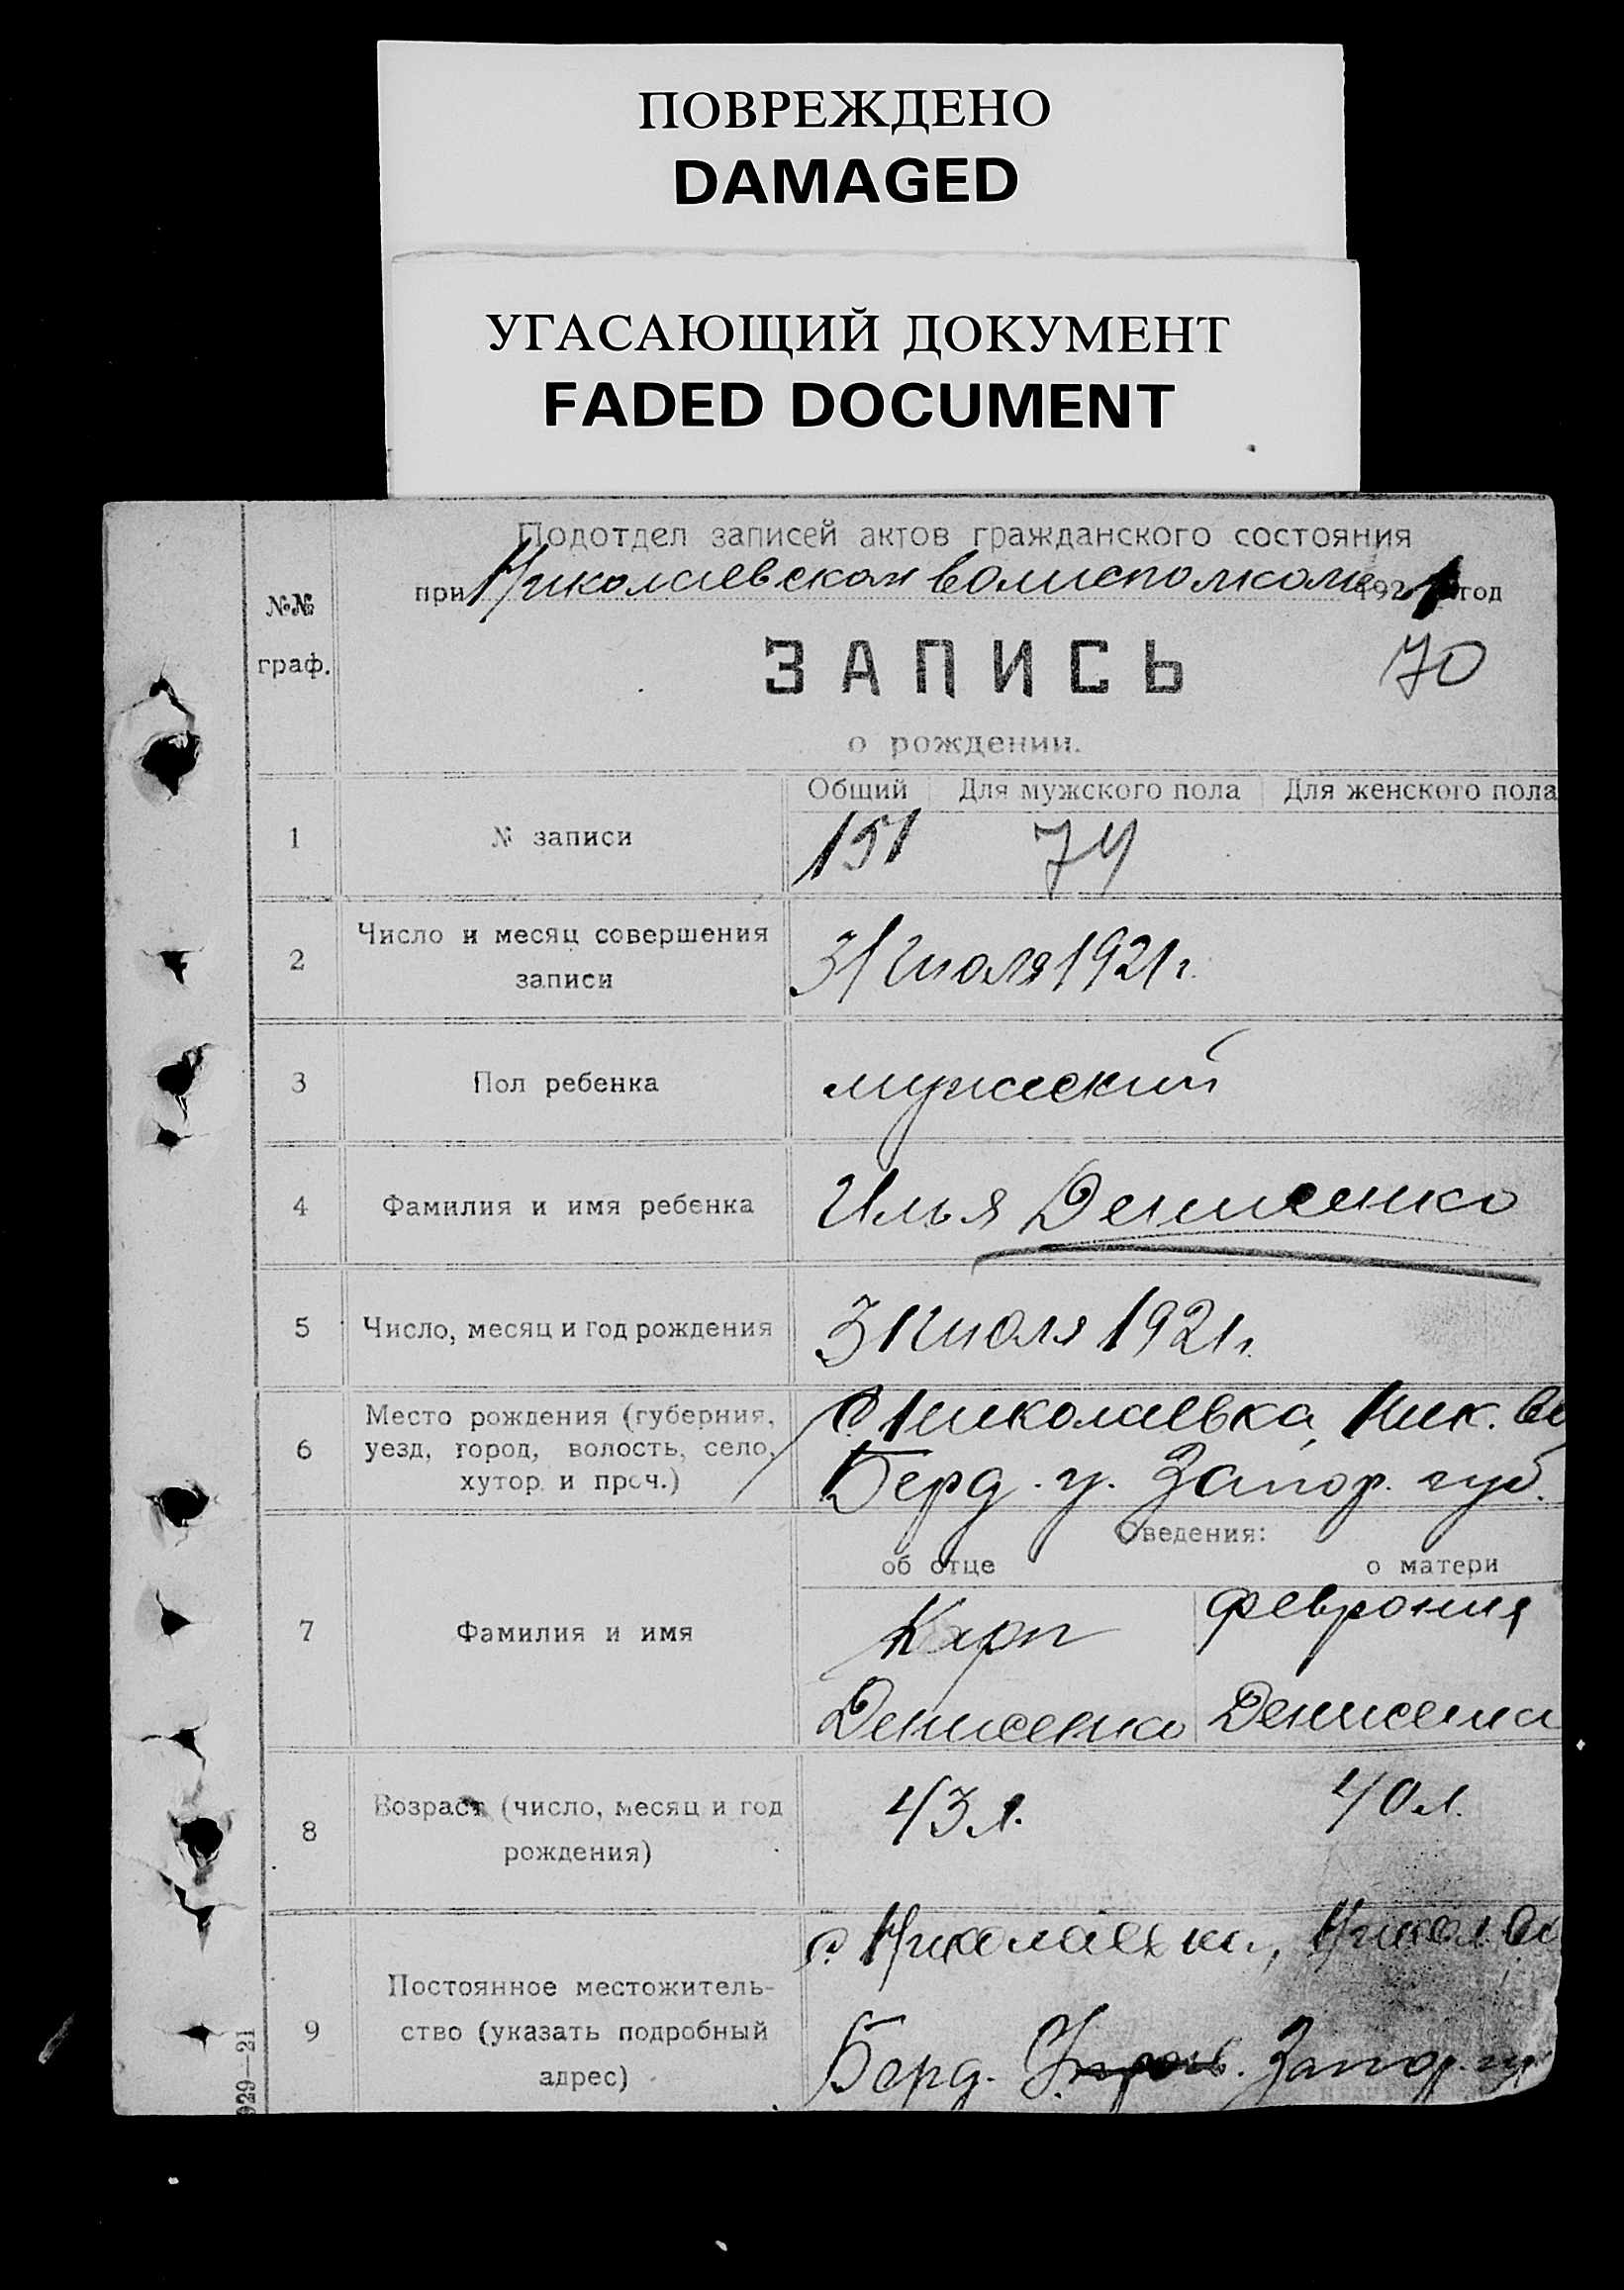 ПОВРЕЖДЕНО
DAMAGED
УГАСАЮЩИЙ ДОКУМЕНТ
FADED DOCUMENT
Подотдел записей актов гражданского состояния
при Николаевском волисполкоме 1921 год
№№
граф.
ЗАПИСЬ
70
о рождении.
Общий Для мужского пола Для женского пола
1 № записи 151 74
2 Число и месяц совершения
записи
31 Июля 1921 г.
3 Пол ребенка мужской
4 Фамилия и имя ребенка Илья Денисенко
5 Число, месяц и год рождения 31 июля 1921 г.
6 Место рождения (губерния,
уезд, город, волость, село,
хутор и проч.)
с. Николаевка, Ник. во
Берд. у. Запор. губ.
Сведения:
об отце о матери
7 Фамилия и имя
Карп Феврония
Денисенко Денисенко
8 Возраст (число, месяц и год
рождения)
43 л. 40 л.
9 Постоянное местожитель-
ство (указать подробный
адрес)
с. Николаевка, Никол. во
Берд. Запор. гу
929—21